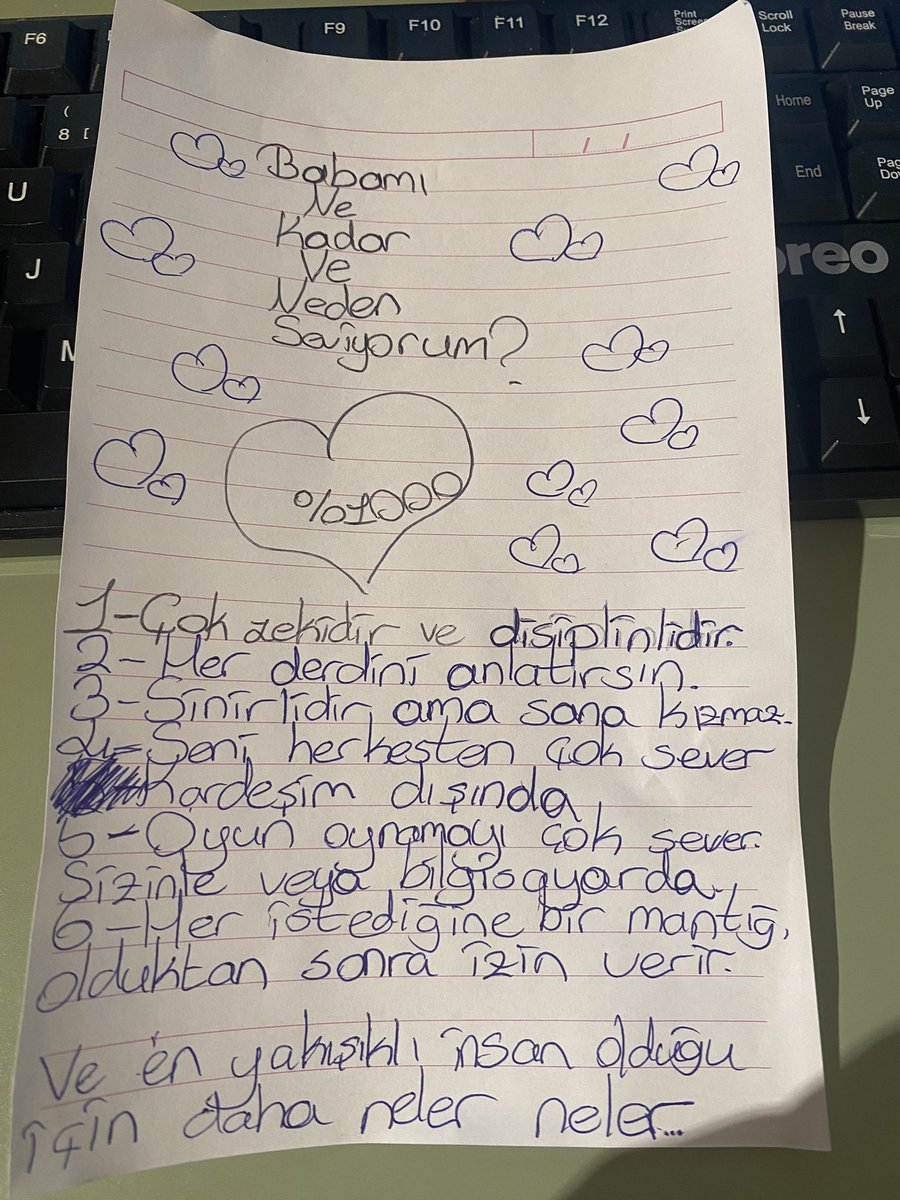 F6
F9
F10
F11
F12
Print
Scroll
Lock
Pause
Break
(
8 [
Home
Page
Up
U
End
J
oreo
↑
↓
/ /
Babamı
Ne
Kadar
Ve
Neden
Seviyorum?
%1000
1-Çok zekidir ve disiplinlidir.
2-Her derdini anlatırsın.
3-Sinirlidir ama sana kızmaz.
4-Seni herkesten çok sever
Kardeşim dışında
5-Oyun oynamayı çok sever.
Sizinle veya bilgisayarda.
6-Her istediğine bir mantığı
olduktan sonra izin verir.
Ve en yakışıklı insan olduğu
için daha neler neler...